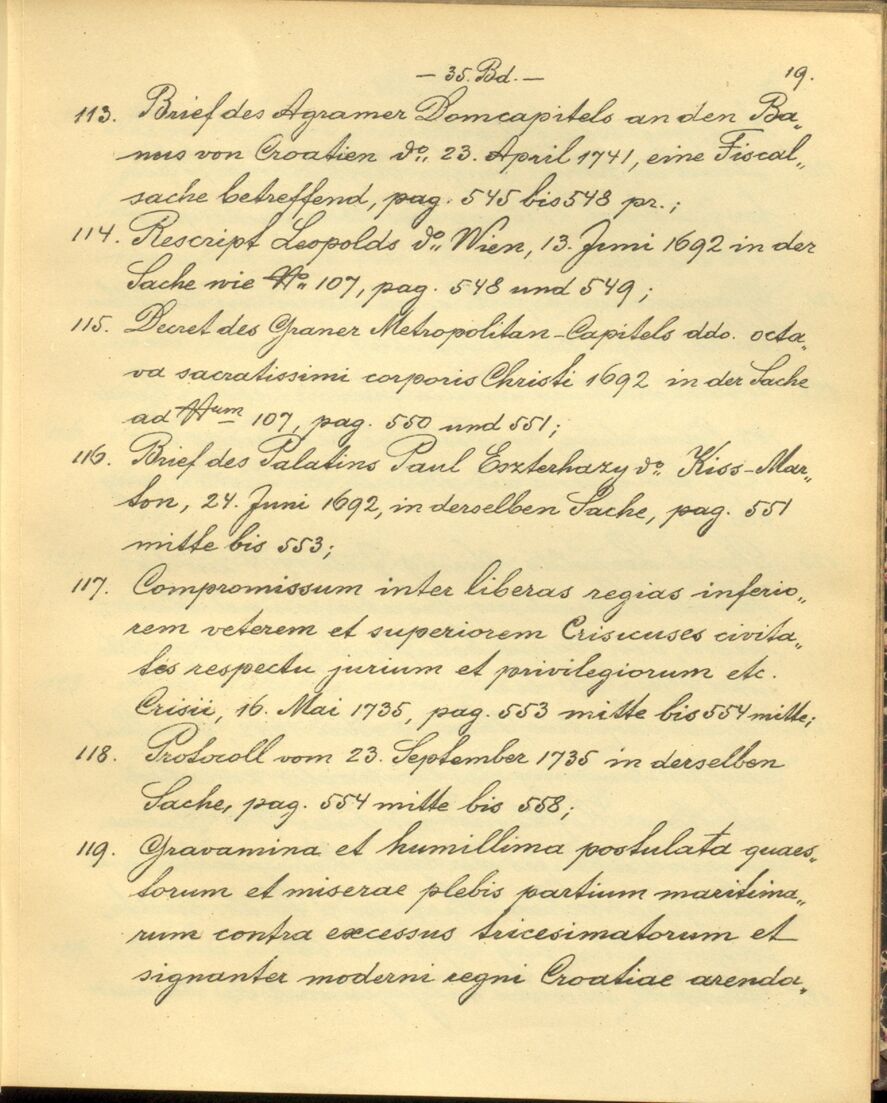 – 35. Bd. –
19.
113. Brief des Agramer Domcapitels an den Ba„
nus von Croatien do. 23. April 1741, eine Fiscal„
sache betreffend, pag. 545 bis 548 pr.;
114. Rescript Leopolds do. Wien, 13. Juni 1692 in der
Sache wie No. 107, pag. 548 und 549;
115. Decret des Graner Metropolitan-Capitels ddo. octa„
va sacratissimi corporis Christi 1692 in der Sache
ad Num 107, pag. 550 und 551;
116. Brief des Palatins Paul Eszterhazy do. Kiss-Mar„
ton, 24. Juni 1692, in derselben Sache, pag. 551
mitte bis 553;
117. Compromissum inter liberas regias inferio„
rem veterem et superiorem Crisicuses civita„
tes respectu jurium et privilegiorum etc.
Crisii, 16. Mai 1735, pag. 553 mitte bis 554 mitte;
118. Protocoll vom 23. September 1735 in derselben
Sache, pag. 554 mitte bis 558;
119. Gravamina et humillima postulata quaes„
torum et miserae plebis partium maritima„
rum contra excessus tricesimatorum et
signanter moderni regni Croatiae arenda„